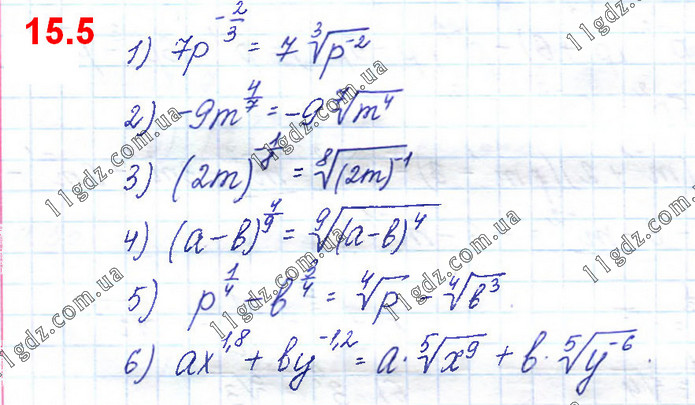 15.5
1) 7p^(-2/3) = 7 ∛(p^(-2))
2) -9m^(4/7) = -9 ⁷√(m^4)
3) (2m)^(-1/8) = ⁸√((2m)^(-1))
4) (a-b)^(4/9) = ⁹√((a-b)^4)
5) p^(1/4) - b^(3/4) = ⁴√p - ⁴√(b^3)
6) ax^(1,8) + by^(-1,2) = a·⁵√(x^9) + b·⁵√(y^(-6)).
11gdz.com.ua
11gdz.com.ua
11gdz.com.ua
11gdz.com.ua
11gdz.com.ua
11gdz.com.ua
11gdz.com.ua
11gdz.com.ua